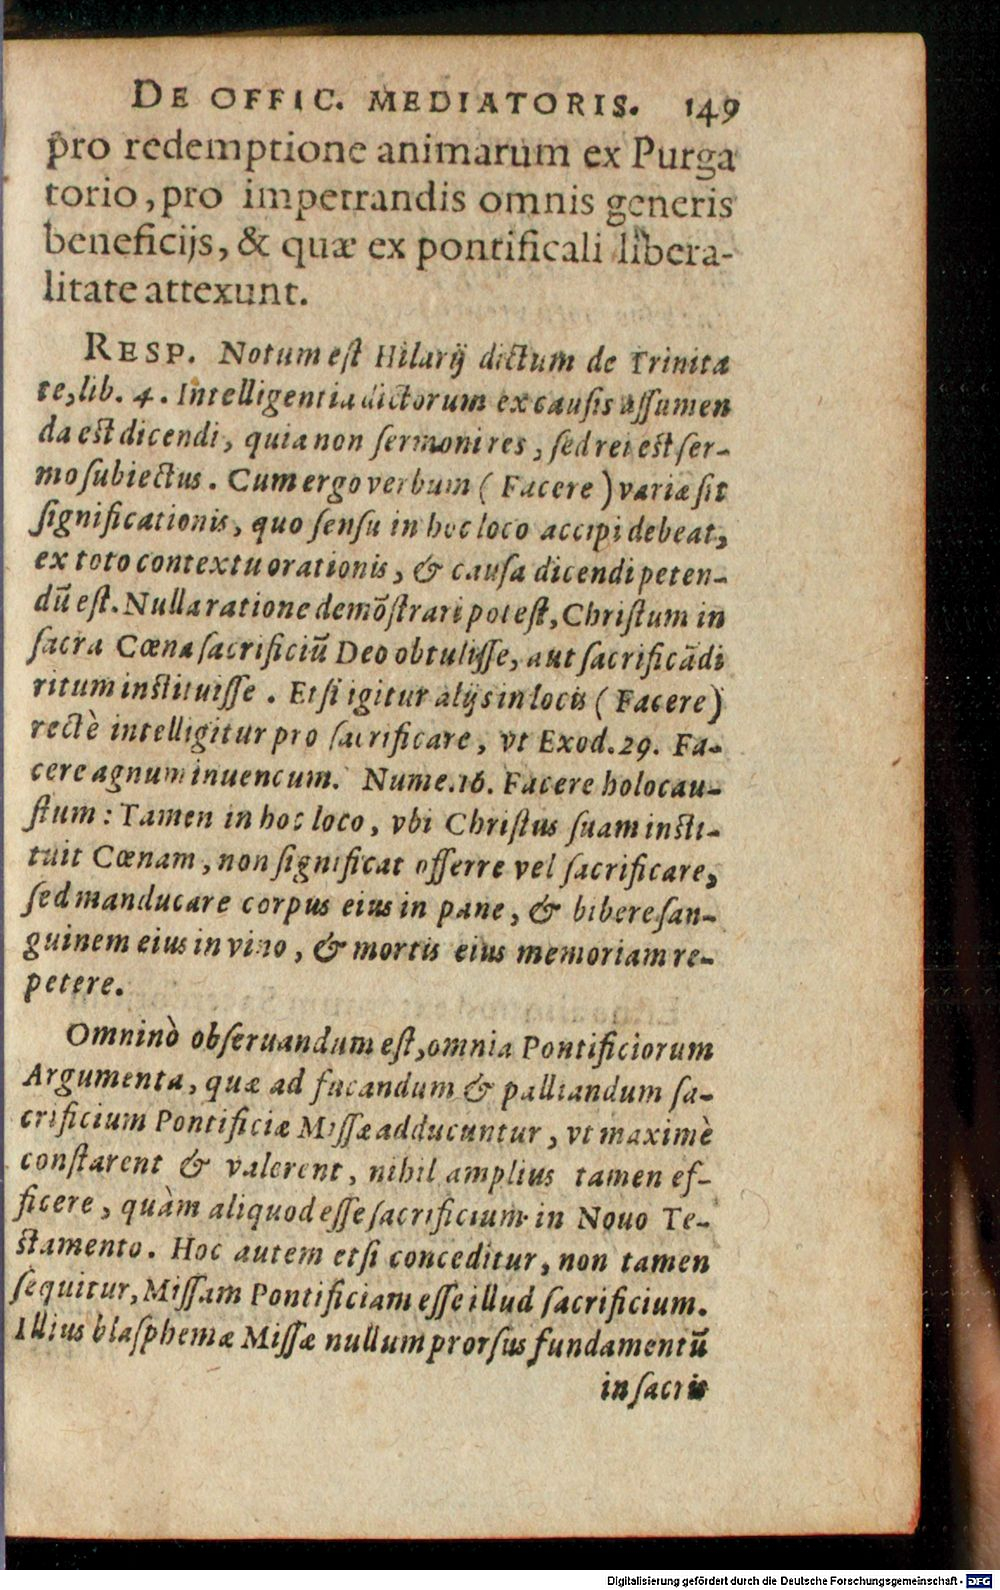 DE OFFIC. MEDIATORIS. 149
pro redemptione animarum ex Purga
torio, pro impetrandis omnis generis
beneficijs, & quæ ex pontificali libera-
litate attexunt.
RESP. Notum eſt Hilarij dictum de Trinita
te, lib. 4. Intelligentia dictorum ex cauſis aſſumen
da est dicendi, quia non ſermoni res, ſed rei est ſer-
mo ſubiectus. Cum ergo verbum (Facere) variæ ſit
ſignificationis, quo ſenſu in hoc loco accipi debeat,
ex toto contextu orationis, & cauſa dicendi peten-
dū eſt. Nulla ratione demōſtrari poteſt, Chriſtum in
ſacra Cœna ſacrificiū Deo obtuliſſe, aut ſacrificādi
ritum instituiſſe. Etſi igitur alijs in locis (Facere)
rectè intelligitur pro ſacrificare, vt Exod. 29. Fa-
cere agnum inuencum. Nume. 16. Facere holocau-
ſtum: Tamen in hoc loco, vbi Chriſtus ſuam insti-
tuit Cœnam, non ſignificat offerre vel ſacrificare,
ſed manducare corpus eius in pane, & bibere ſan-
guinem eius in vino, & mortis eius memoriam re-
petere.
Omninò obſeruandum eſt, omnia Pontificiorum
Argumenta, quæ ad fucandum & palliandum ſa-
crificium Pontificiæ Miſſæ adducuntur, vt maximè
conſtarent & valerent, nihil amplius tamen ef-
ficere, quàm aliquod eſſe ſacrificium in Nouo Te-
stamento. Hoc autem etſi conceditur, non tamen
ſequitur, Miſſam Pontificiam eſſe illud ſacrificium.
Illius blaſphemæ Miſſæ nullum prorſus fundamentū
in ſacris
Digitalisierung gefördert durch die Deutsche Forschungsgemeinschaft - DFG